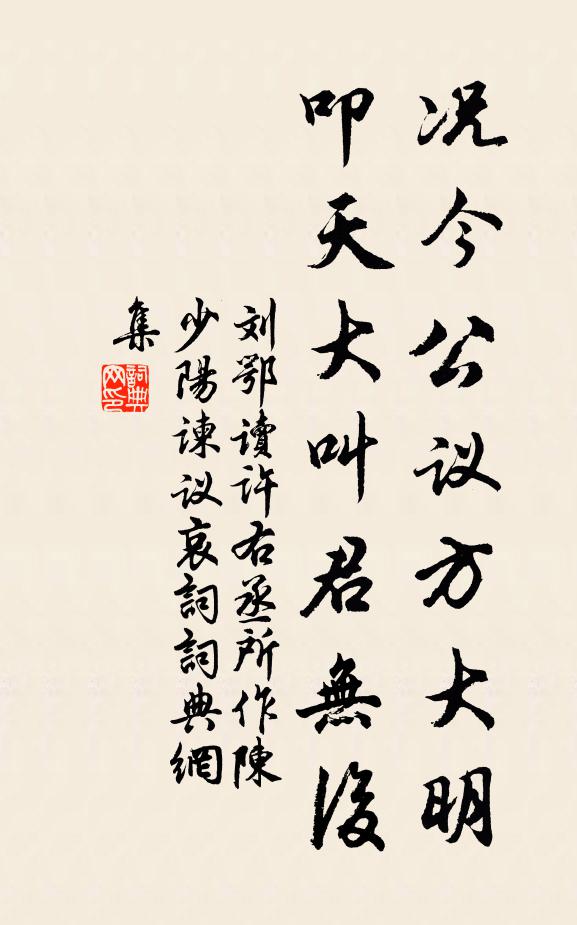 况今公议方大明
叩天大叫君無復
刘鄂讀許右丞所作陳
少陽諫议哀詞詞典網
集
詞典
网印